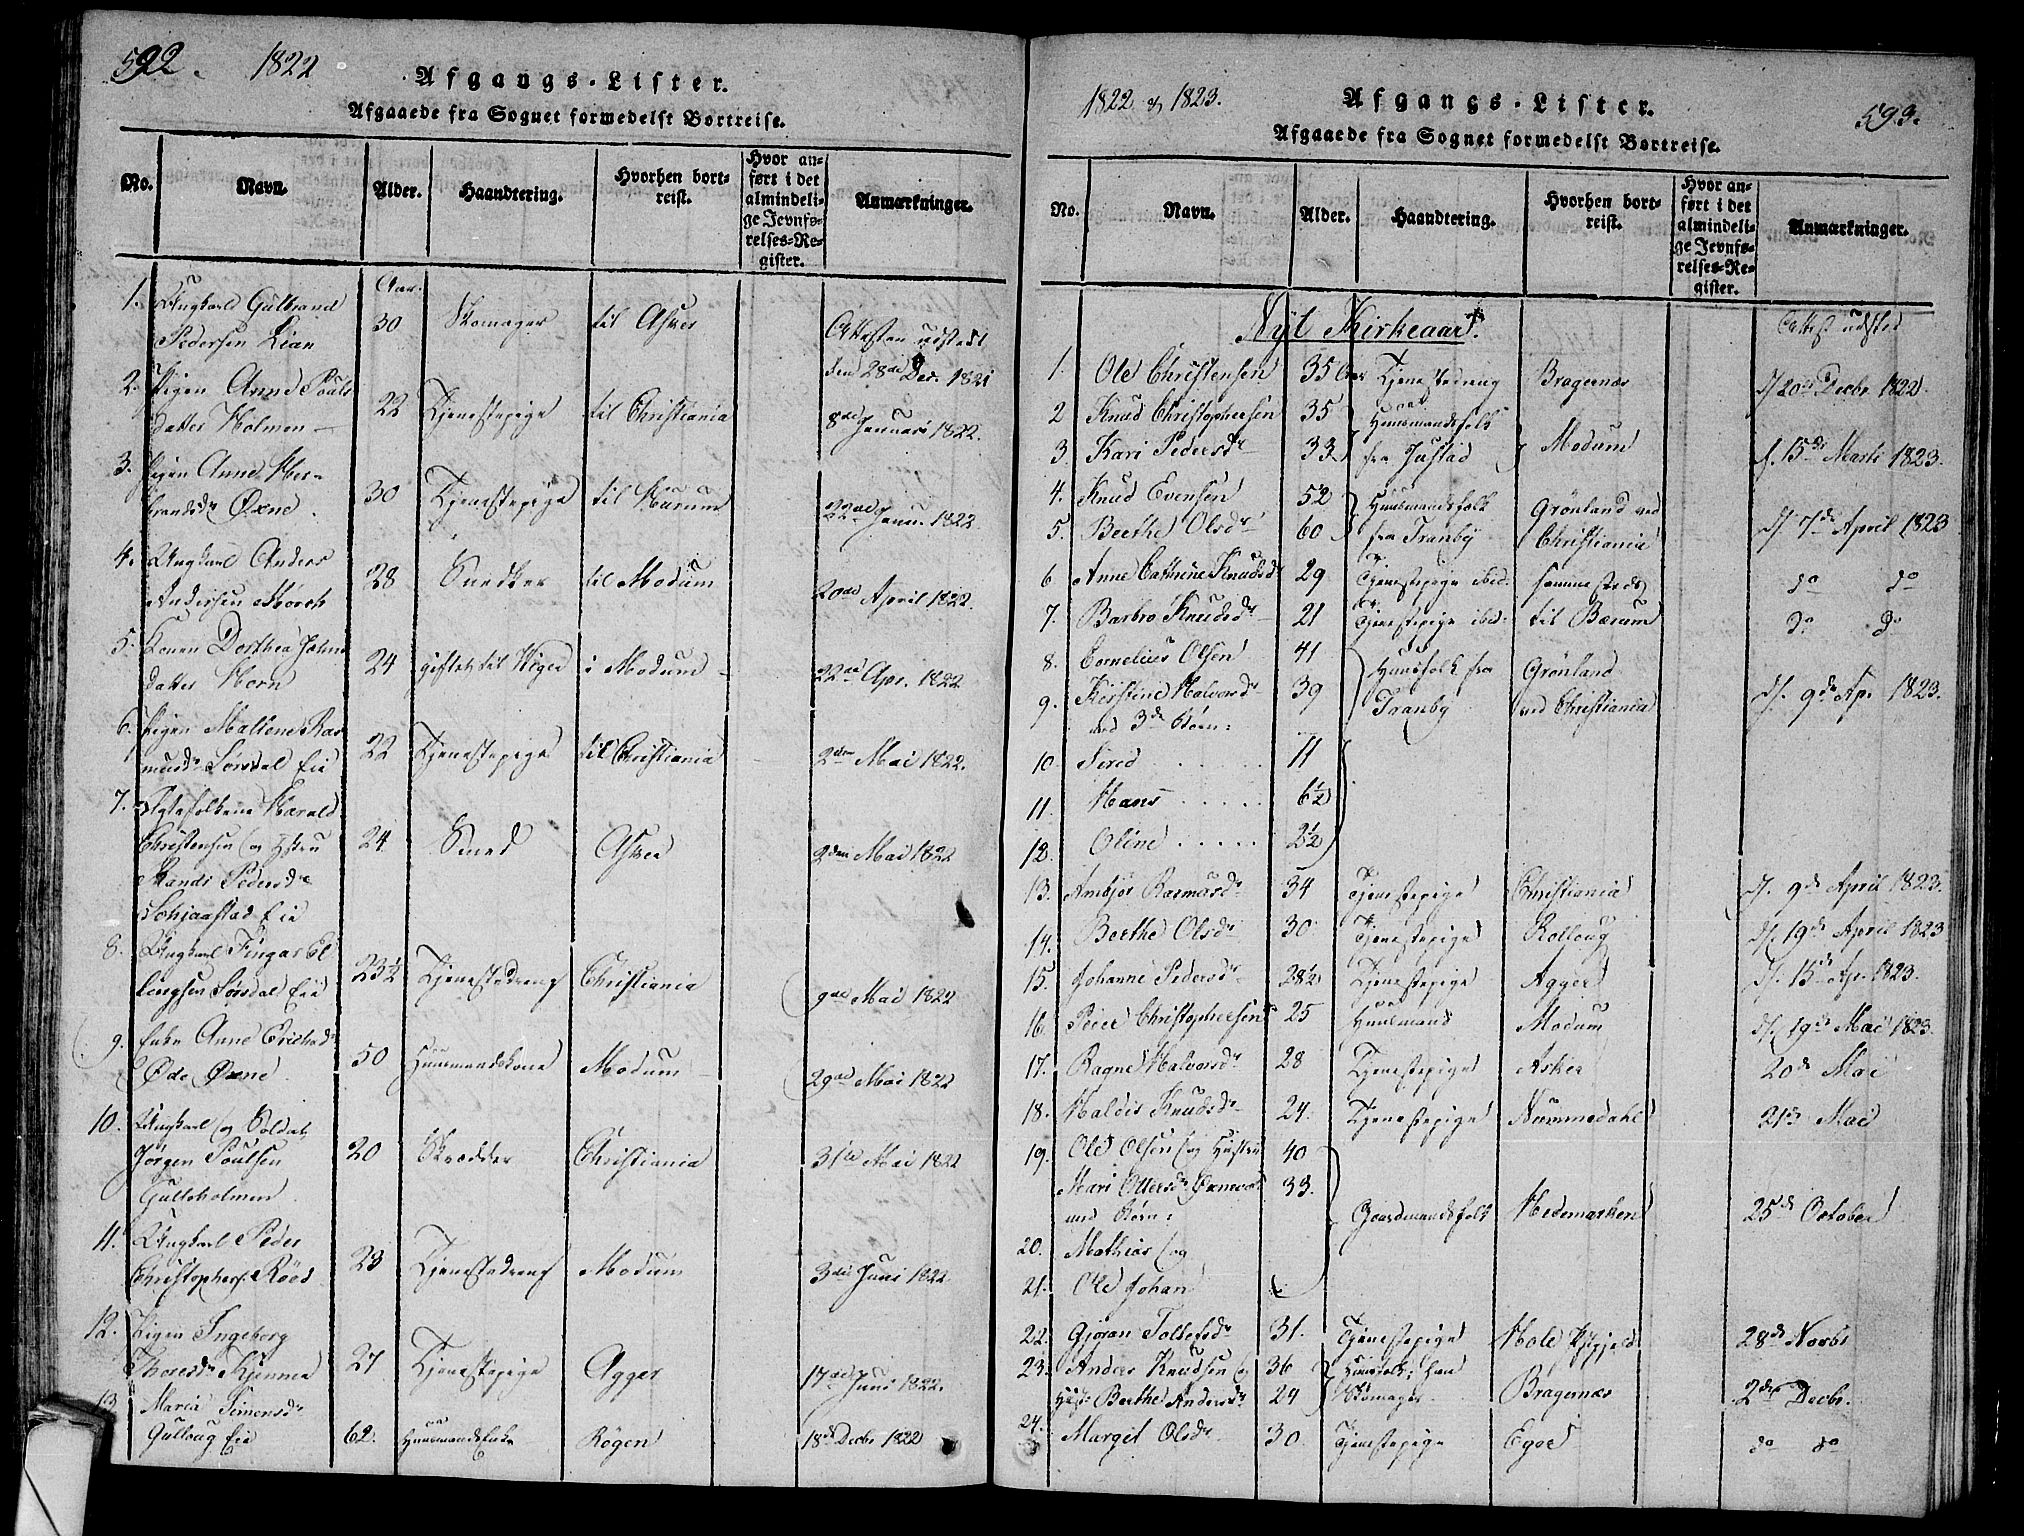 592. 1822
Afgangs-Lister.
Afgaaede fra Sognet formedelst Bortreise.
No. Navn. Alder. Haandtering. Hvorhen bort-reist. Hvor an-ført i det almindeli-ge Jevnfø-relses-Re-gister. Anmærkninger.
Aar.
1. Ungkarl Gulbrand
Pedersen Lian 30 Skomager til Asker Attesten udstedt
den 28de Dec. 1821
2. Pigen Anne Pouls
datter Holmen 22 Tjenestepige til Christiania 8de Januari 1822.
3. Pigen Anne Her-
brandsdr Øxne. 30 Tjenestepige til Hurum 22de Janu. 1822.
4. Ungkarl Anders
Andersen Mørch 28 Snedker til Modum 20de April 1822.
5. Konen Dorthea Johns
datter Horn 24 giftet til Wiger i Modum 22de Apr. 1822
6. Pigen Mallene Ras
musdr Sørsdal Eie 22 Tjenestepige til Christiania 2den Mai 1822.
7. Ægtefolkene Harald
Christensen og Hstru 24 Smed Asker 2den Mai 1822
Randi Pedersdr
Schjaastad Eie
8. Ungkarl Fingar El
lingsen Sørsdal Eie 23½ Tjenestedreng Christiania 9de Mai 1822
9. Enke Anne Erichsdr
Øde Øxne. 50 Huusmandskone Modum 29de Mai 1822
10. Ungkarl og Soldat
Jørgen Poulsen 20 Skrædder Christiania 31te Mai 1822
Gulsholmen.
11. Ungkarl Peder
Christophers. Röed 23 Tjenestedreng Modum 3die Juni 1822
12. Pigen Ingeborg
Thoresdr Hjennen 27 Tjenestepige Agger 17de Juni 1822.
13 Maria Simensdr
Gulloug Eie 62. Huusmandsenke Rögen 18de Decbr 1822
1822 & 1823.
Afgangs-Lister.
593.
Afgaaede fra Sognet formedelst Bortreise.
No. Navn. Alder. Haandtering. Hvorhen bort-reist. Hvor an-ført i det almindeli-ge Jevnfø-relses-Re-gister. Anmærkninger.
Nyt Kirkeaar. Attest udsted
1. Ole Christensen 35 Aar Tjenestedreng Bragernæs d. 20de Decbr 1822.
2 Knud Christophersen 35 Huusmandsfolk
3. Kari Pedersdr 33 fra Justad Modum d. 15de Marts 1823.
4. Knud Evensen 52 Huusmandsfolk Grönland ved
5. Berthe Olsdr 60 fra Tranby Christiania d. 7de April 1823
6 Anne Cathrine Knudsdr 29 Tjenestepige ibid: sammesteds do do
7. Barbro Knudsdr 21 Tjenestepige ibid: til Bærum do do
8. Cornelius Olsen 41 Huusfolk fra Grönland
9. Kirstine Halvorsdr 39 Tranby ved Christiania d. 9de Ap. 1823.
med 3de Börn:
10. Sired 11
11. Hans 6½
12. Oline 2½
13. Ambjør Rasmusdr 34 Tjenestepige Christiania d. 9de April 1823.
14. Berthe Olsdr 30. Tjenestepige Rolloug d. 19de April 1823
15. Johanne Pedersdr 28½ Tjenestepige Agger d. 15de Ap. 1823.
16. Peder Christophersen 25 Huusmand Modum d. 19de Mai 1823.
17. Ragne Halvorsdr 28 Tjenestepige Asker 20de Mai
18. Haldis Knudsdr 24. Tjenestepige Nummedahl 21de Mai
19. Ole Olsen og Hustru 40
Mari Ottersdr Øxne 33. Gaardmandsfolk Hedemarken 25de October
med Börn:
20. Mathias og
21. Ole Johan
22. Gjøran Tollefsdr 31. Tjenestepige Hole Pstgjeld 28de Novbr
23. Anders Knudsen og 36 Huusfolk, han
Hust: Berthe Andersdr 24 Skomager Bragernæs 2den Decbr.
24. Margit Olsdr 30 Tjenestepige Eger do do